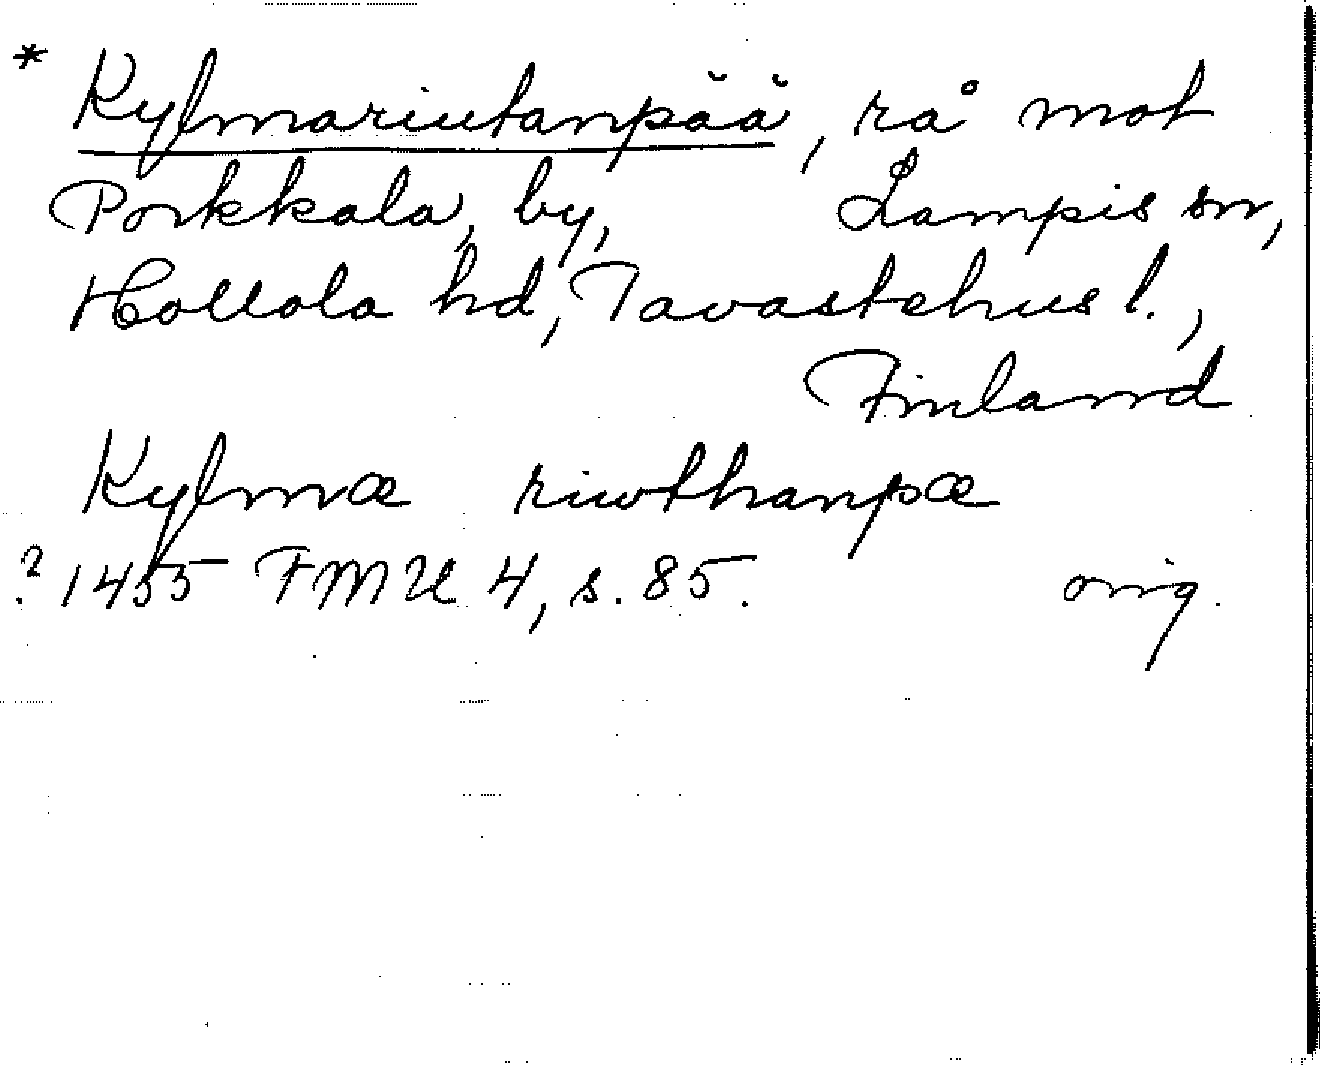 * Kylmäriutanpää, rå mot
Porkkala, by, Lampis sn,
Hollola hd, Tavastehus l.,
Finland
Kylmæ riwthanpæ
? 1455 FMU 4, s. 85. orig.